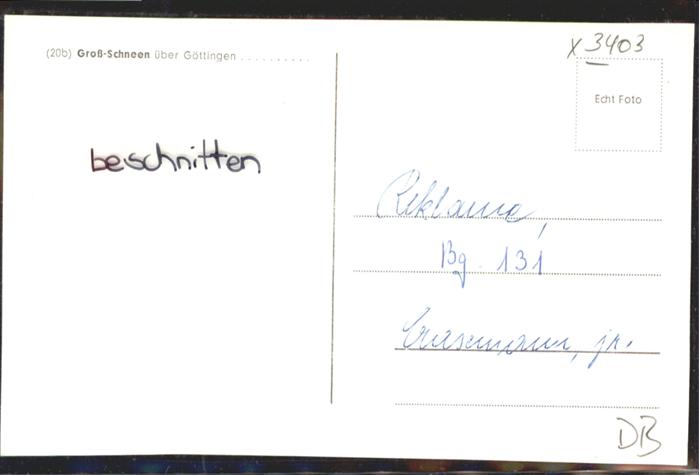 x 3403
(20b) Groß-Schneen über Göttingen ..........
Echt Foto
beschnitten
Reklame,
Bg. 131
jr.
DB